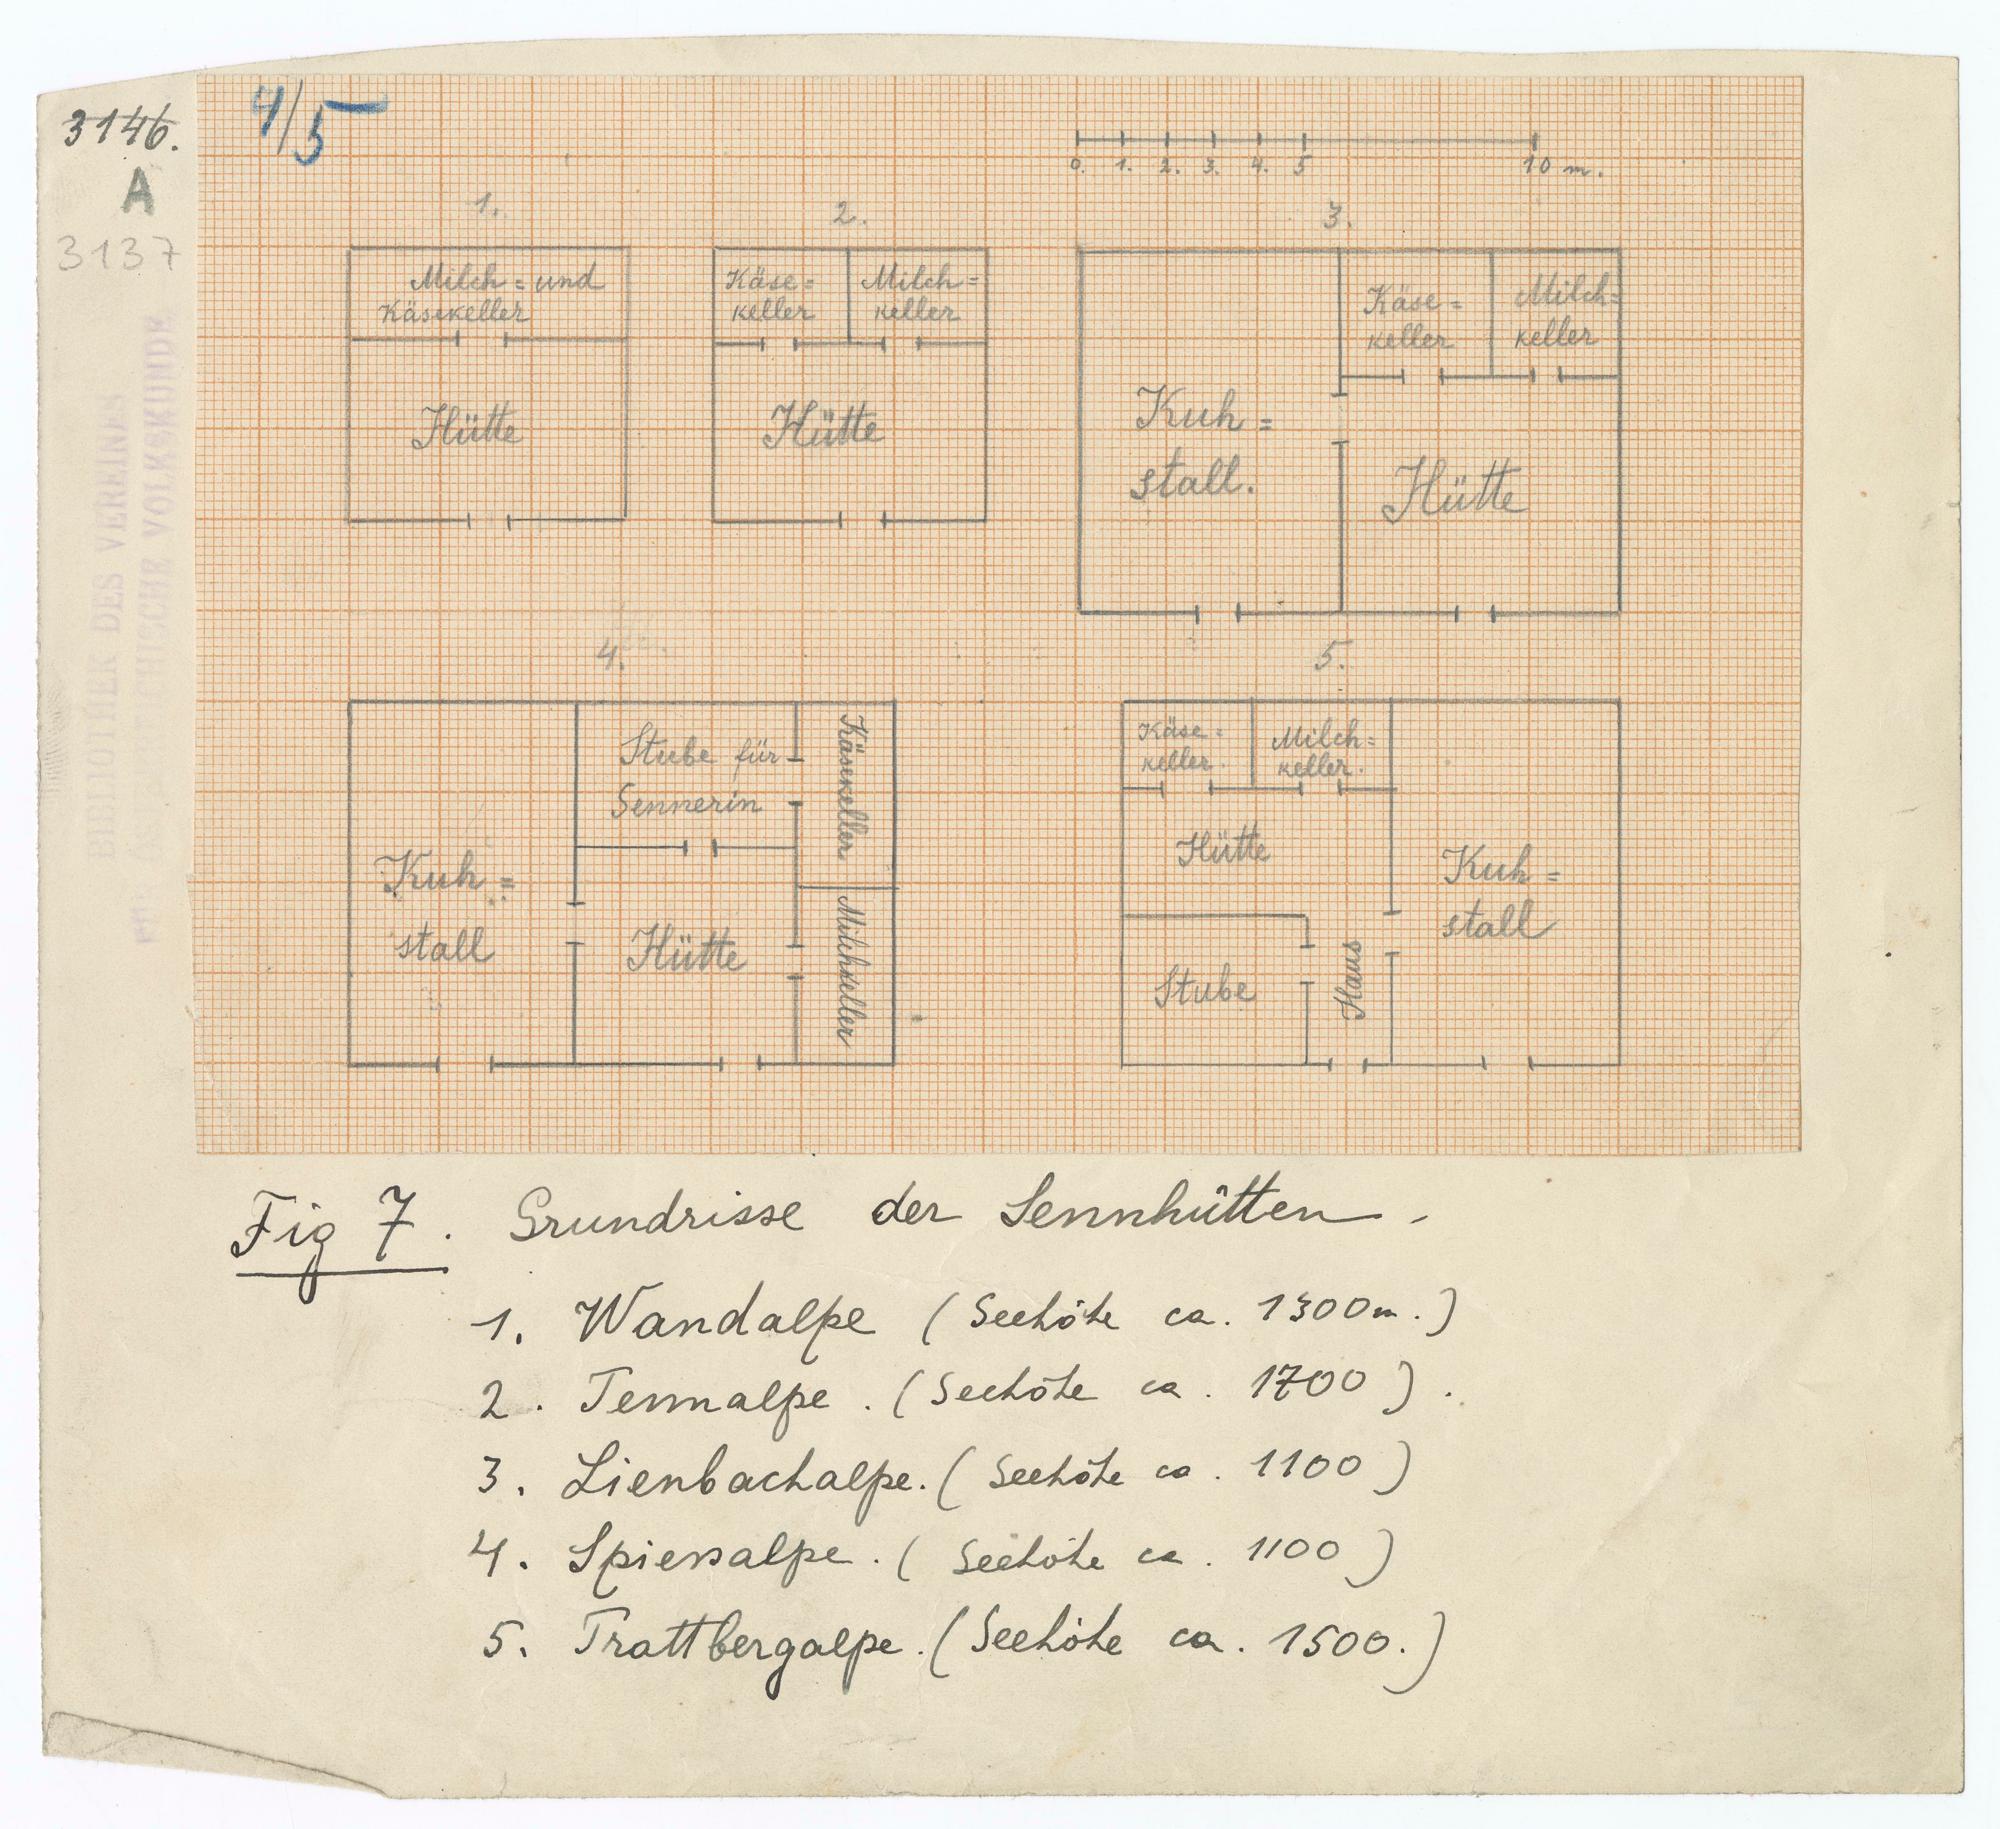 3146.
A
3137
4/5
BIBLIOTHEK DES VEREINES
VOLKSKUNDE
0. 1. 2. 3. 4. 5 10 m.
1.
Milch= und
Käsekeller
Hütte
2.
Käse=
keller
Milch=
keller
Hütte
3.
Kuh=
stall.
Käse=
keller
Milch=
keller
Hütte
4.
Kuh=
stall
Stube für
Sennerin
Hütte
Käsekeller
Milchkeller
5.
Käse=
keller.
Milch=
keller.
Hütte
Stube
Haus
Kuh=
stall
Fig 7. Grundrisse der Sennhütten.
1. Wandalpe (Seehöhe ca. 1300m.)
2. Tennalpe. (Seehöhe ca. 1700).
3. Lienbachalpe. (Seehöhe ca. 1100)
4. Spiessalpe. (Seehöhe ca. 1100)
5. Trattbergalpe. (Seehöhe ca. 1500.)